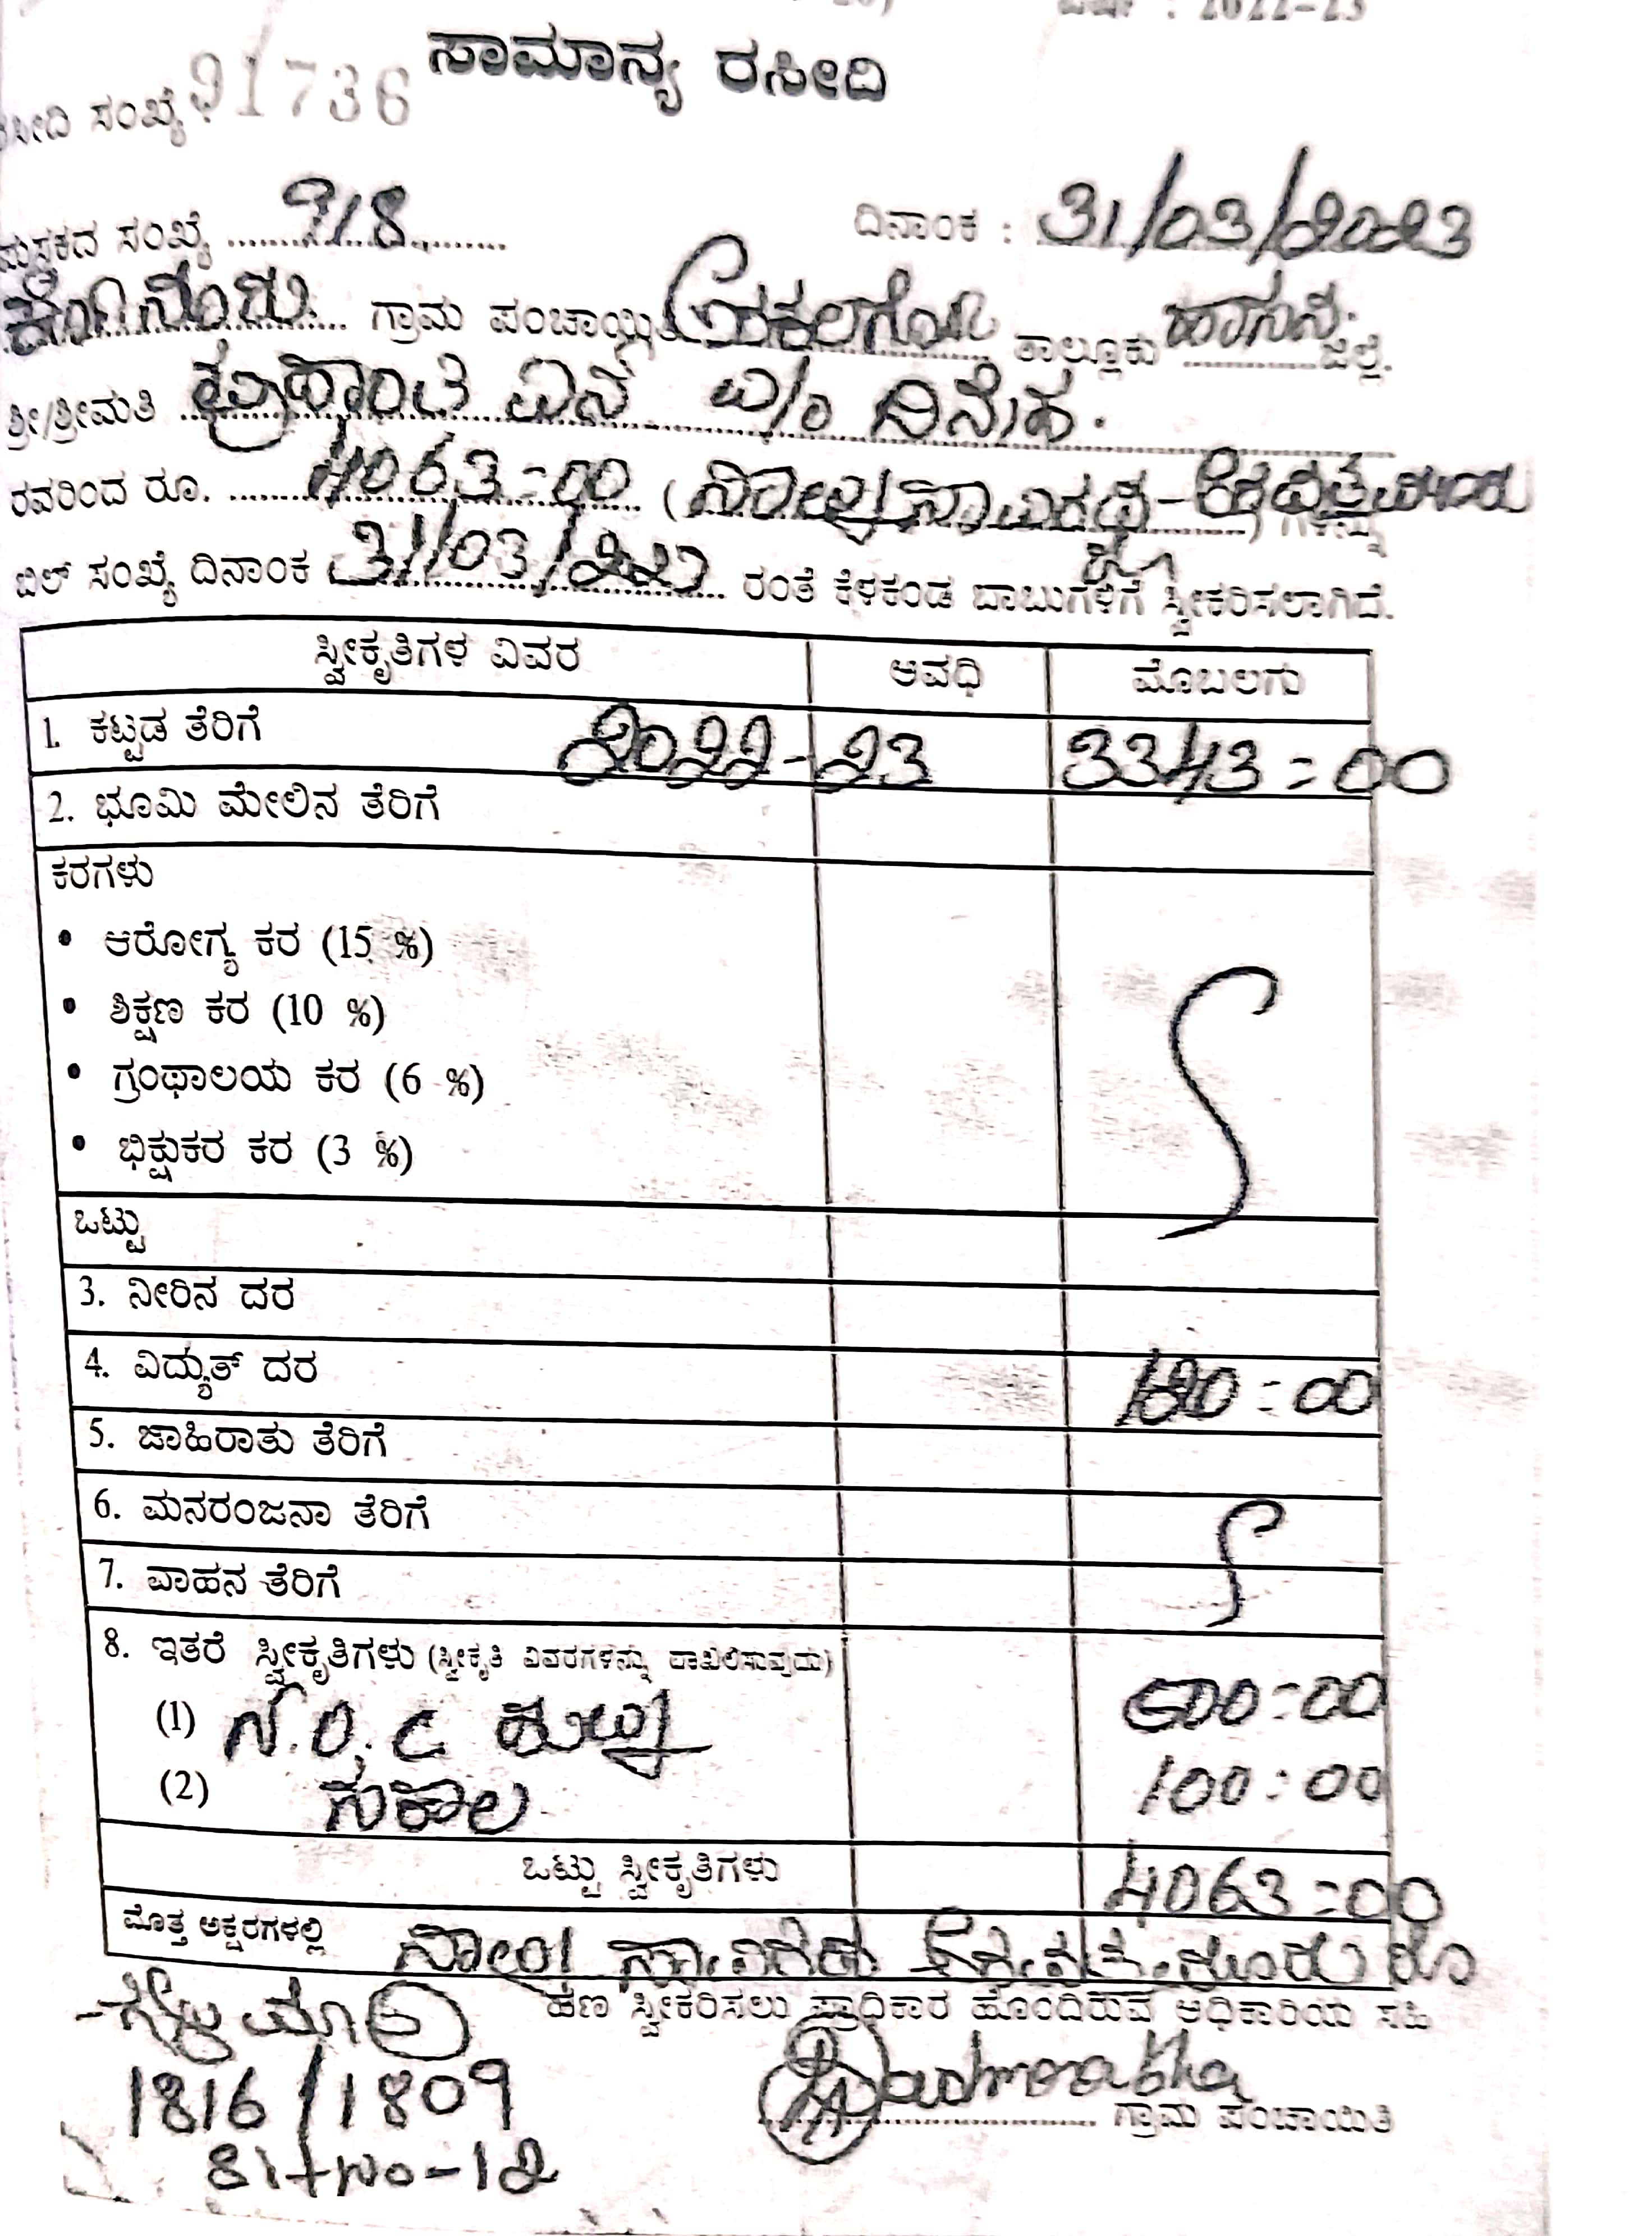 ಸಾಮಾನ್ಯ ರಸೀದಿ
ಸಂಖ್ಯೆ 91736
ಪುಸ್ತಕದ ಸಂಖ್ಯೆ 918 ದಿನಾಂಕ : 31/03/2023
ಗ್ರಾಮ ಪಂಚಾಯ್ತಿ ತಾಲ್ಲೂಕು ಹಾಸನ ಜಿಲ್ಲೆ.
ಶ್ರೀ/ಶ್ರೀಮತಿ ಪ್ರಶಾಂತ ಎನ್
ರವರಿಂದ ರೂ. 4063=00 ( ) ಗಳನ್ನು
ಬಿಲ್ ಸಂಖ್ಯೆ ದಿನಾಂಕ 31/03/ ರಂತೆ ಕೆಳಕಂಡ ಬಾಬುಗಳಿಗೆ ಸ್ವೀಕರಿಸಲಾಗಿದೆ.
ಸ್ವೀಕೃತಿಗಳ ವಿವರ ಅವಧಿ ಮೊಬಲಗು
1. ಕಟ್ಟಡ ತೆರಿಗೆ 2022-23 3343=00
2. ಭೂಮಿ ಮೇಲಿನ ತೆರಿಗೆ
ಕರಗಳು
• ಆರೋಗ್ಯ ಕರ (15 %)
• ಶಿಕ್ಷಣ ಕರ (10 %)
• ಗ್ರಂಥಾಲಯ ಕರ (6 %)
• ಭಿಕ್ಷುಕರ ಕರ (3 %)
ಒಟ್ಟು
3. ನೀರಿನ ದರ
4. ವಿದ್ಯುತ್ ದರ 120=00
5. ಜಾಹಿರಾತು ತೆರಿಗೆ
6. ಮನರಂಜನಾ ತೆರಿಗೆ
7. ವಾಹನ ತೆರಿಗೆ
8. ಇತರೆ ಸ್ವೀಕೃತಿಗಳು (ಸ್ವೀಕೃತಿ ವಿವರಗಳನ್ನು ದಾಖಲಿಸುವುದು)
(1) N.O.C ಶುಲ್ಕ 500=00
(2) ಸಕಾಲ 100=00
ಒಟ್ಟು ಸ್ವೀಕೃತಿಗಳು 4063=00
ಮೊತ್ತ ಅಕ್ಷರಗಳಲ್ಲಿ
ಹಣ ಸ್ವೀಕರಿಸಲು ಪ್ರಾಧಿಕಾರ ಹೊಂದಿರುವ ಅಧಿಕಾರಿಯ ಸಹಿ
1816/1809
ಗ್ರಾಮ ಪಂಚಾಯಿತಿ
SitNo-12